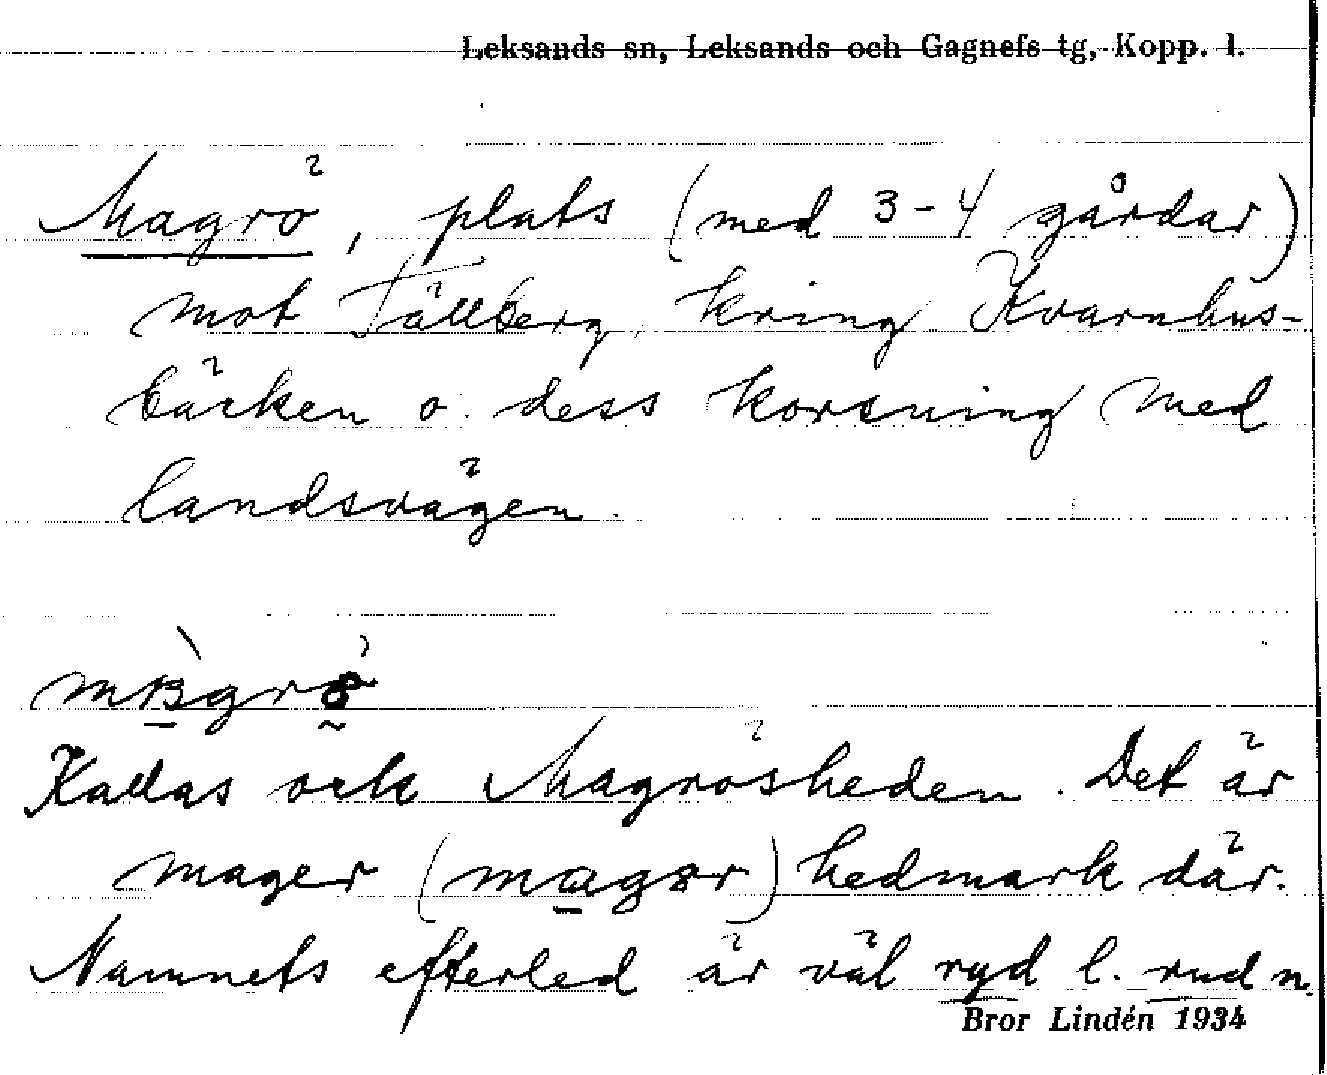 Leksands sn, Leksands och Gagnefs tg, Kopp. l.
Magrö, plats (med 3-4 gårdar)
mot Tällberg, kring Kvarnhus-
bäcken o. dess korsning med
landsvägen.
Kallas ock Magrösheden. Det är
mager (magər) hedmark där.
Namnets efterled är väl ryd l. rud n.
Bror Lindén 1934